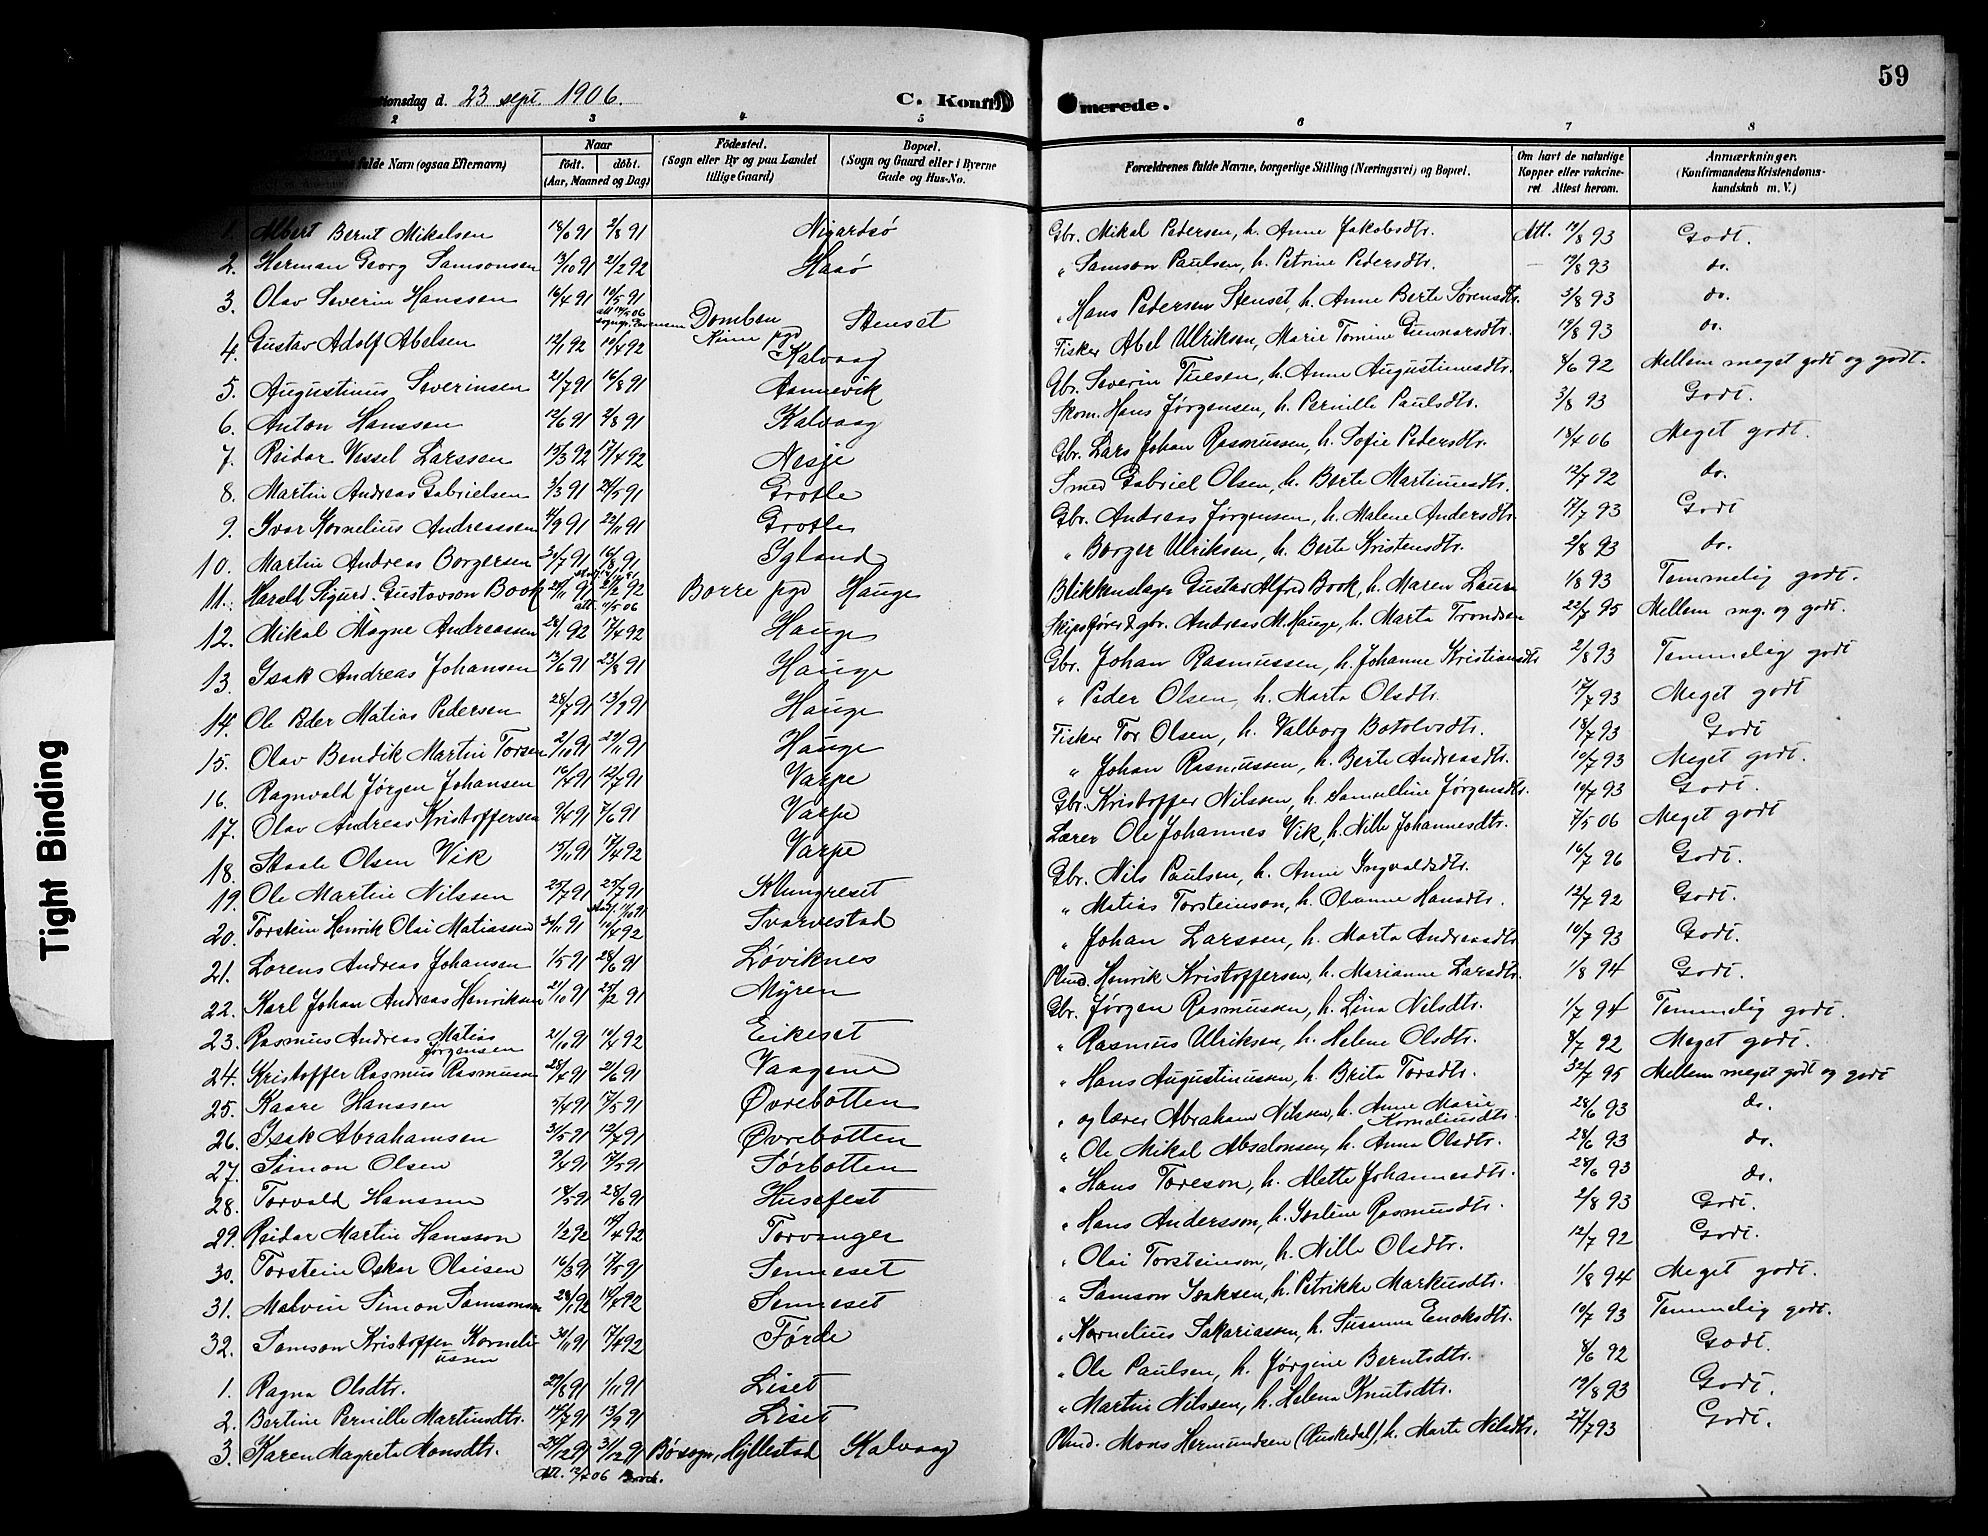 59
tionsdag d. 23 sept. 1906.
C. Konfir merede.
2 3 4 5 6 7 8
fulde Navn (ogsaa Efternavn)
Naar
födt. döbt.
(Aar, Maaned og Dag)
Födested.
(Sogn eller By og paa Landet
tillige Gaard)
Bopæl.
(Sogn og Gaard eller i Byerne
Gade og Hus-No.
Forældrenes fulde Navne, borgerlige Stilling (Næringsvei) og Bopæl.
Om havt de naturlige
Kopper eller vakcine-
ret Attest herom.
Anmærkninger.
(Konfirmandens Kristendoms-
kundskab m. V.)
1. Albert Bernt Mikalsen 18/6 91 2/8 91 Nigardsø Gbr. Mikal Pedersen, h. Anne Jakobsdtr. Att. 19/8 93 Godt.
2. Herman Georg Samsonsen 13/10 91 21/2 92 Haasø " Samson Paulsen, h. Petrine Pedersdtr. 19/8 93 do.
3. Olav Severin Hanssen 16/4 91 10/5 91 Domben Kinn pgd Stenset " Hans Pedersen Stenset, h. Anne Berte Sørensdtr. 3/8 93 do.
4. Gustav Adolf Abelsen 12/1 92 10/4 92 Kalvaag Fisker Abel Ulriksen, Marie Tomine Gunnarsdtr. 19/8 93 do.
5. Augustinus Severinsen 21/7 91 16/8 91 Asmevik Gbr. Severin Tuesen, h. Anne Augustinusdtr. 8/6 92 Mellem meget godt og godt.
6. Anton Hanssen 12/6 91 2/8 91 Kalvaag Skom. Hans Jørgensen, h. Pernille Paulsdtr. 3/8 93 Godt.
7. Reidar Vessel Larssen 15/3 92 17/4 92 Nesje Gbr. Lars Johan Rasmussen, h. Sofie Pedersdtr. 18/4 06 Meget godt.
8. Martin Andreas Gabrielsen 3/3 91 24/5 91 Grotle Smed Gabriel Olsen, h. Berte Martinusdtr. 12/7 92 do.
9. Ivar Kornelius Andreassen 4/9 91 22/11 91 Grotle Gbr. Andreas Jørgensen, h. Malene Andersdtr. 17/7 93 Godt
10. Martin Andreas Borgersen 30/7 91 16/8 91 Igland " Borger Ulriksen, h. Berte Kristensdtr. 2/8 93 do.
11. Harald Sigurd Gustavson Book 25/11 91 21/2 92 att. 11/5 06 Borre pgd Hauge Blikkenslager Gustav Alfred Book, h. Maren Laura 1/8 93 Temmelig godt.
12. Mikal Magne Andreassen 28/1 92 17/4 92 Hauge Skipsfører & gbr. Andreas M. Hauge, h. Marta Trondsen 22/7 95 Mellem mg. og godt.
13. Isak Andreas Johansen 13/6 91 23/8 91 Hauge Gbr. Johan Rasmussen, h. Johanne Kristiansdtr 2/8 93 Temmelig godt
14. Ole Peder Matias Pedersen 28/7 91 13/9 91 Hauge " Peder Olsen, h. Marta Olsdtr. 17/7 93 Meget godt
15. Olav Bendik Martin Torsen 2/10 91 29/11 91 Hauge Fisker Tor Olsen, h. Valborg Botolvsdtr. 18/7 93 Godt
16. Ragnvald Jørgen Johansen 16/4 91 12/7 91 Varpe " Johan Rasmussen, h. Berte Andreasdtr. 10/7 93 Meget godt.
17. Olav Andreas Kristoffersen 9/4 91 7/6 91 Varpe Gbr. Kristoffer Nilssen, h. Samuelline Jørgensdtr. 14/7 93 Godt.
18. Staale Olsen Vik 15/11 91 17/4 92 Varpe Lærer Ole Johannes Vik, h. Nille Johannesdtr. 7/5 06 Meget godt
19. Ole Martin Nilssen 25/7 91 25/7 91 Klungreset Gbr. Nils Paulsen, h. Anne Ingvaldsdtr. 16/7 96 Godt.
20. Torstein Henrik Olai Matiassen 30/11 91 10/4 92 Svarvestad " Matias Torsteinson, h. Olianne Hansdtr. 12/7 92 Godt.
21. Lorens Andreas Johansen 1/5 91 28/6 91 Løviknes " Johan Larssen, h. Marta Andreasdtr 10/7 93 Godt.
22. Karl Johan Andreas Henriksen 21/10 91 25/12 91 Myren Plmd. Henrik Kristoffersen, h. Marianne Larsdtr. 1/8 94 Godt.
23. Rasmus Andreas Matias Jørgensen 21/10 91 10/4 92 Eikeset Gbr. Jørgen Rasmussen, h. Lina Nilsdtr. 1/7 94 Temmelig godt.
24. Kristoffer Rasmus Rasmussen 28/4 91 21/6 91 Vaagene " Rasmus Ulriksen, h. Helene Olsdtr. 8/7 92 Meget godt.
25. Kaare Hanssen 5/4 91 17/5 91 Øvrebotten " Hans Augustinussen, h. Brita Torsdtr. 32/7 95 Mellem meget godt og godt
26. Isak Abrahamsen 31/5 91 12/7 91 Øvrebotten " og lærer Abraham Nilssen, h. Anne Marie Korneliusdtr. 28/6 93 do.
27. Simon Olsen 9/4 91 17/5 91 Sørbotten " Ole Mikal Absalonsen, h. Anna Olsdtr. 28/6 93 do.
28. Torvald Hanssen 18/5 91 28/6 91 Husefest " Hans Toreson, h. Alette Johannesdtr. 28/6 93 do.
29. Reidar Martin Hansson 1/2 92 19/4 92 Torvanger " Hans Andersson, h. Joaline Rasmusdtr. 2/8 93 Godt.
30. Torstein Oskar Olaisen 16/3 91 17/5 91 Senneset " Olai Torsteinson, h. Nille Olsdtr. 12/7 92 Godt.
31. Malvin Simon Samsonsen 28/1 92 10/7 92 Senneset " Samson Isaksen, h. Petrikke Markusdtr. 1/8 94 Meget godt.
32. Samson Kristoffer Korneliussen 30/11 91 17/4 92 Førde " Kornelius Sakariassen, h. Susanna Enoksdtr. 10/7 93 Temmelig godt.
1. Ragna Olsdtr. 27/8 91 1/11 91 Liset " Ole Paulsen, h. Jørgine Berntsdtr. 8/6 92 Godt.
2. Bertine Pernille Martinsdtr. 14/7 91 13/9 91 Liset " Martin Nilssen, h. Helena Knutsdtr. 19/8 93 Godt.
3. Karen Magrete Monsdtr. 20/12 91 31/12 91 Bø sogn, Hyllestad Kalvaag Plmd. Mons Hermundsen (Russkedal), h. Marte Nilsdtr. 27/7 93 Godt.
Att. 12/7 06 Brock.
Tight Binding